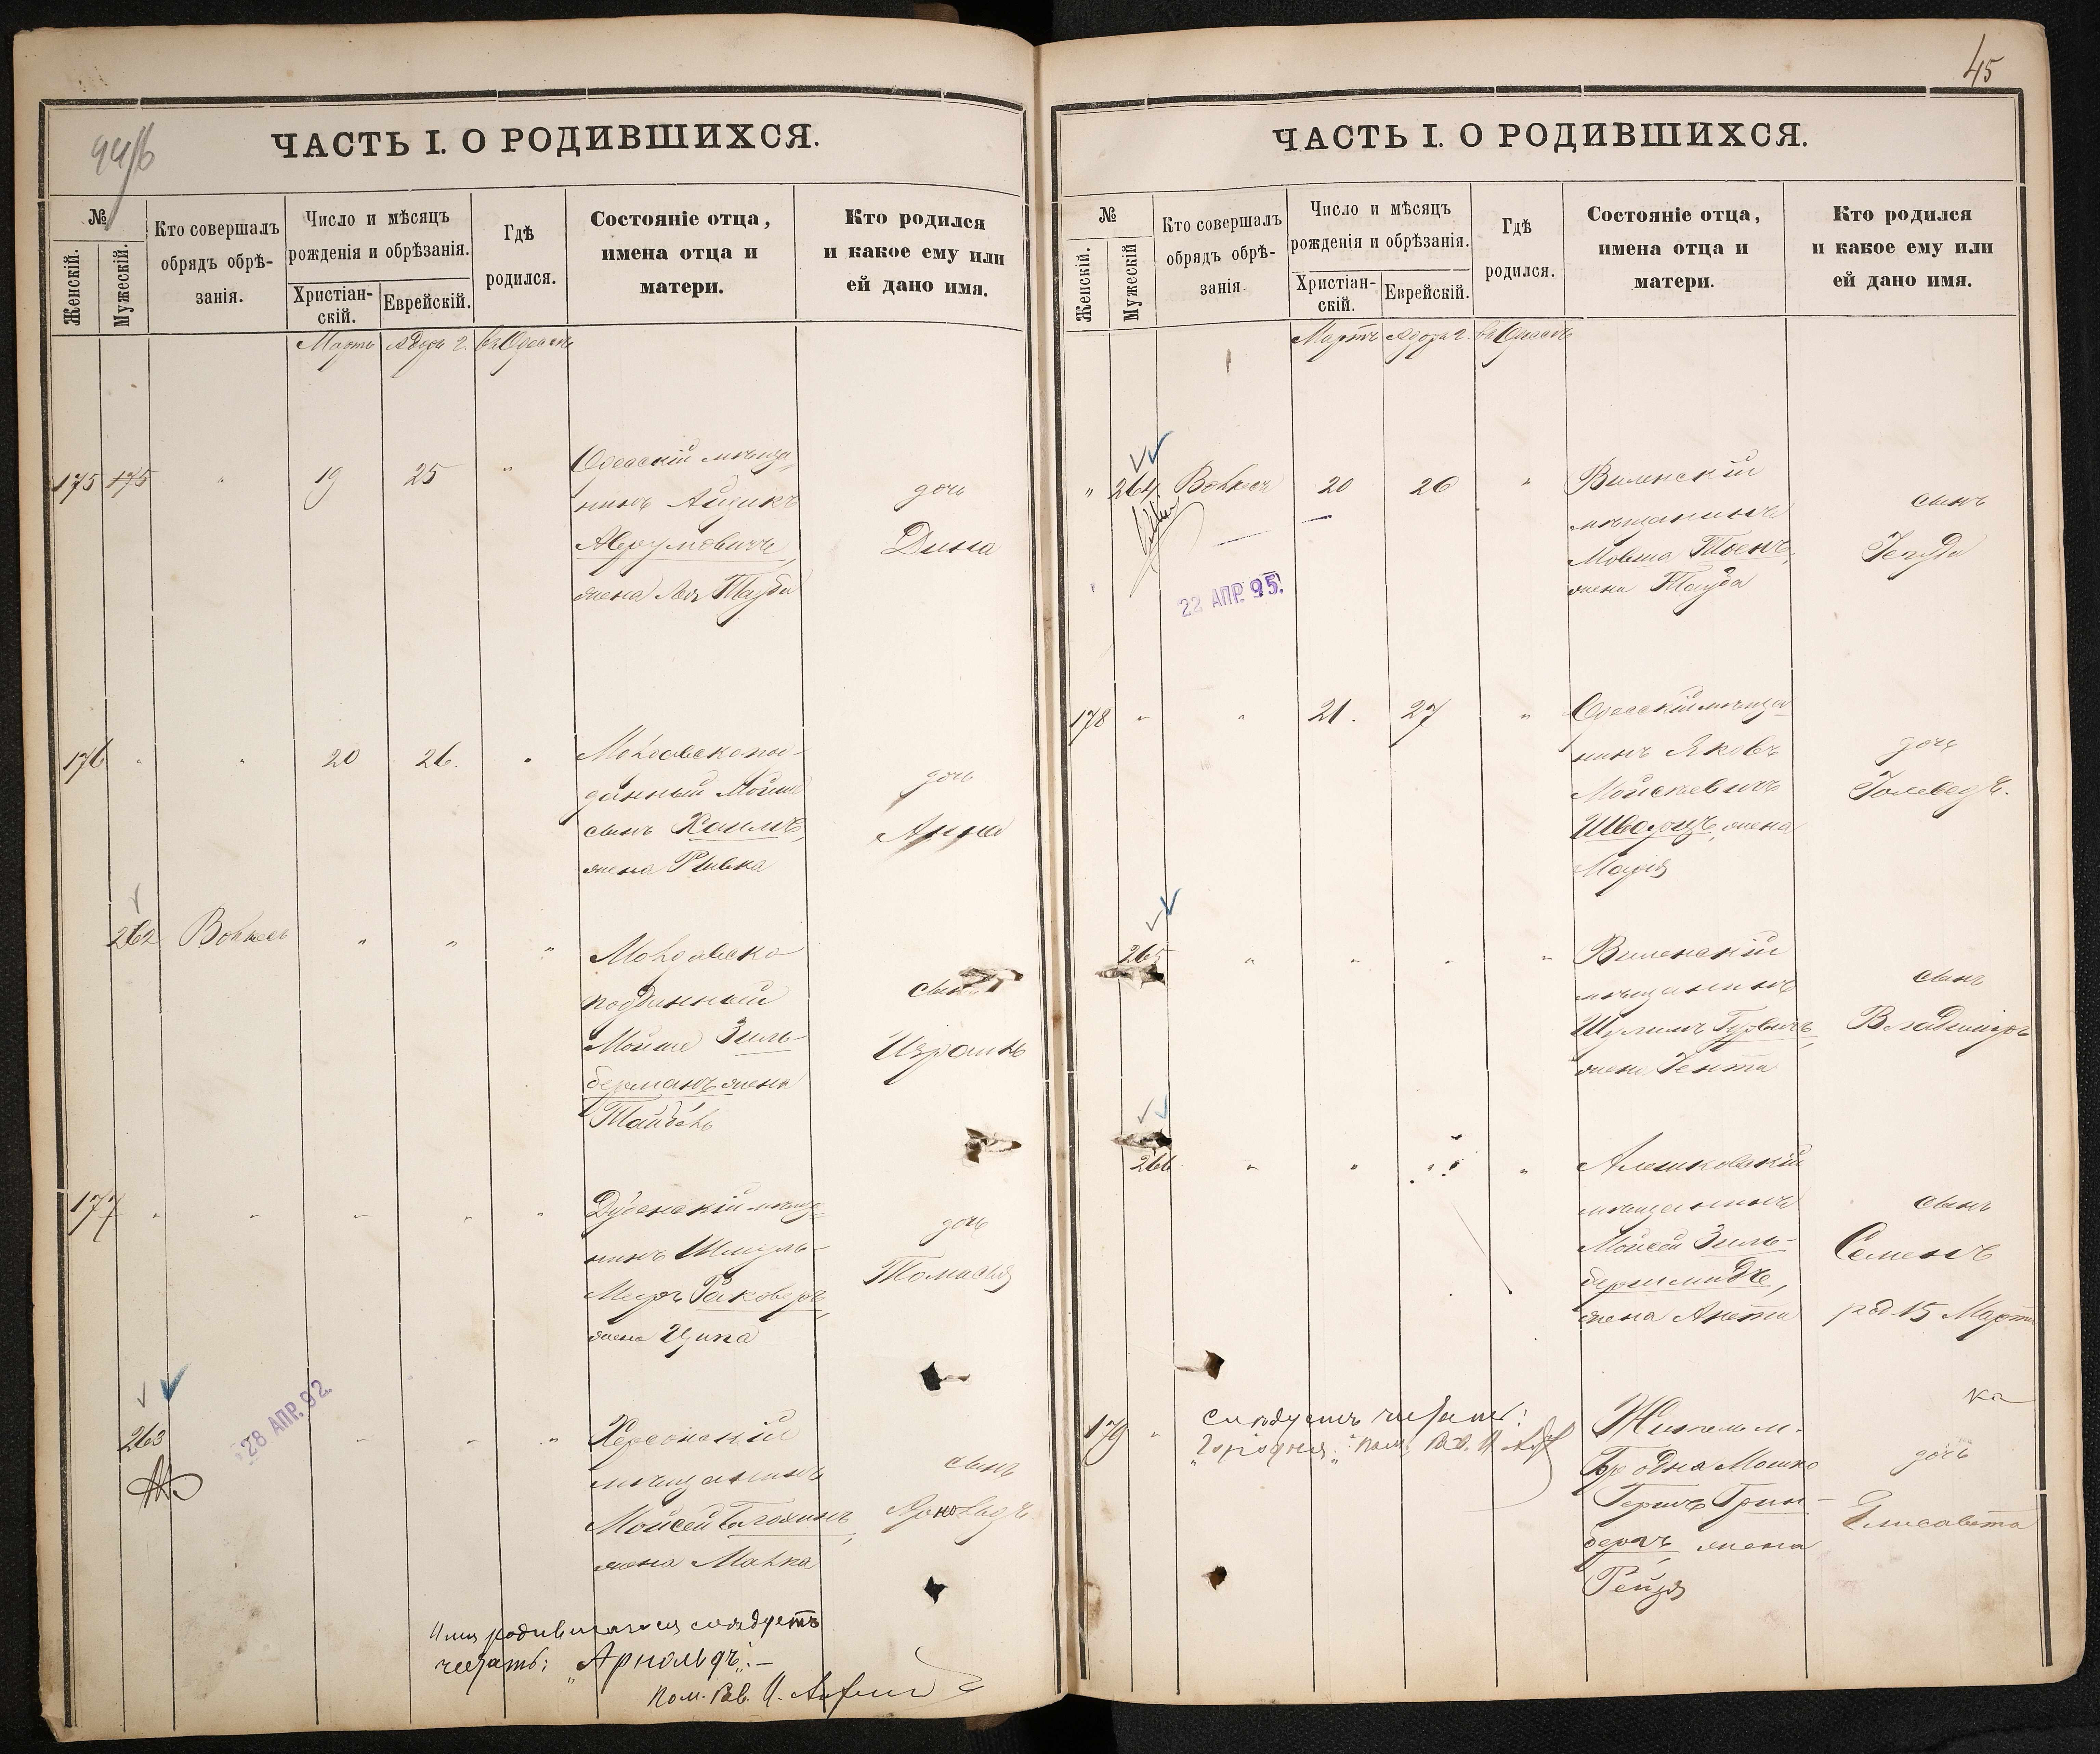 44/6
ЧАСТЬ I. О РОДИВШИХСЯ.
№
Женскій.
Мужескій.
Кто совершалъ
обрядъ обрѣ-
занія.
Число и мѣсяцъ
рожденія и обрѣзанія.
Христіан-
скій.
Еврейскій.
Гдѣ
родился.
Состояніе отца,
имена отца и
матери.
Кто родился
и какое ему или
ей дано имя.
Мартъ Адоръ 2. въ Одессѣ
175 175 " 19 25 "
Одесскій мѣща-
нинъ Айзикъ
Аврумовичъ,
жена Лея Тауба
дочь
Дина
176 " " 20 26. "
Молдавскопод-
данный Мойше
сынъ Хаимъ,
жена Ривка
дочь
Анна
262 Волкесъ " " "
Молдавско
подданный
Мойше Зиль-
берманъ жена
Тайбель
сынъ
Израиль
177 " " " " "
Дубенскій мѣща-
нинъ Шмуль-
Мееръ Раковеръ,
жена Ципа
дочь
263
28 АПР. 92.
" " "
Херсонскій
мѣщанинъ
Мойсей
жена Малка
сынъ
Арнольдъ
Имя родившагося слѣдуетъ
читать: „Арнольдъ". —
Пом. Рав. И.
45
ЧАСТЬ I. О РОДИВШИХСЯ.
№
Женскій.
Мужескій
Кто совершалъ
обрядъ обрѣ-
занія
Число и мѣсяцъ
рожденія и обрѣзанія.
Христіан-
скій.
Еврейскій.
Гдѣ
родился.
Состояніе отца,
имена отца и
матери.
Кто родился
и какое ему или
ей дано имя.
Мартъ Адоръ 2. въ Одессѣ
" 264. Волкесъ 20 26 "
22 АПР. 95.
Виленскій
мѣщанинъ
Мовша
жена Тауба
сынъ
Іегуда
178 " " 21. 27 "
Одесскій мѣща-
нинъ Яковъ
Мойсеевичъ
Шварцъ, жена
Марія
дочь
265 " " " "
Виленскій
мѣщанинъ
Шулимъ Гурвичъ,
жена Гента
сынъ
Владиміръ
266 " " " "
Алешковскій
мѣщанинъ
Мойсей Зиль-
бершмидъ,
жена Анета
сынъ
Семенъ
род. 15 Марта
179 "
слѣдуетъ читать:
Пом. Рав. И.
Житель м.
Мошко
Гершъ Грин-
бергъ, жена
Рейзя
ка
дочь
Елисавета